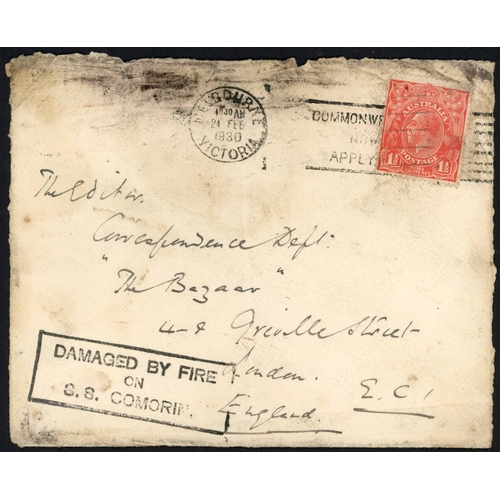 MELBOURNE
10 30 AM
24 FEB
1930
VICTORIA
COMMONWE
NOW
APPLY
AUSTRALIA
POSTAGE
1½ 1½
The Editor.
Correspondence Dept:
"The Bazaar"
4-8 Greville Street
London.
E.C.1
England.
DAMAGED BY FIRE
ON
S.S. COMORIN.